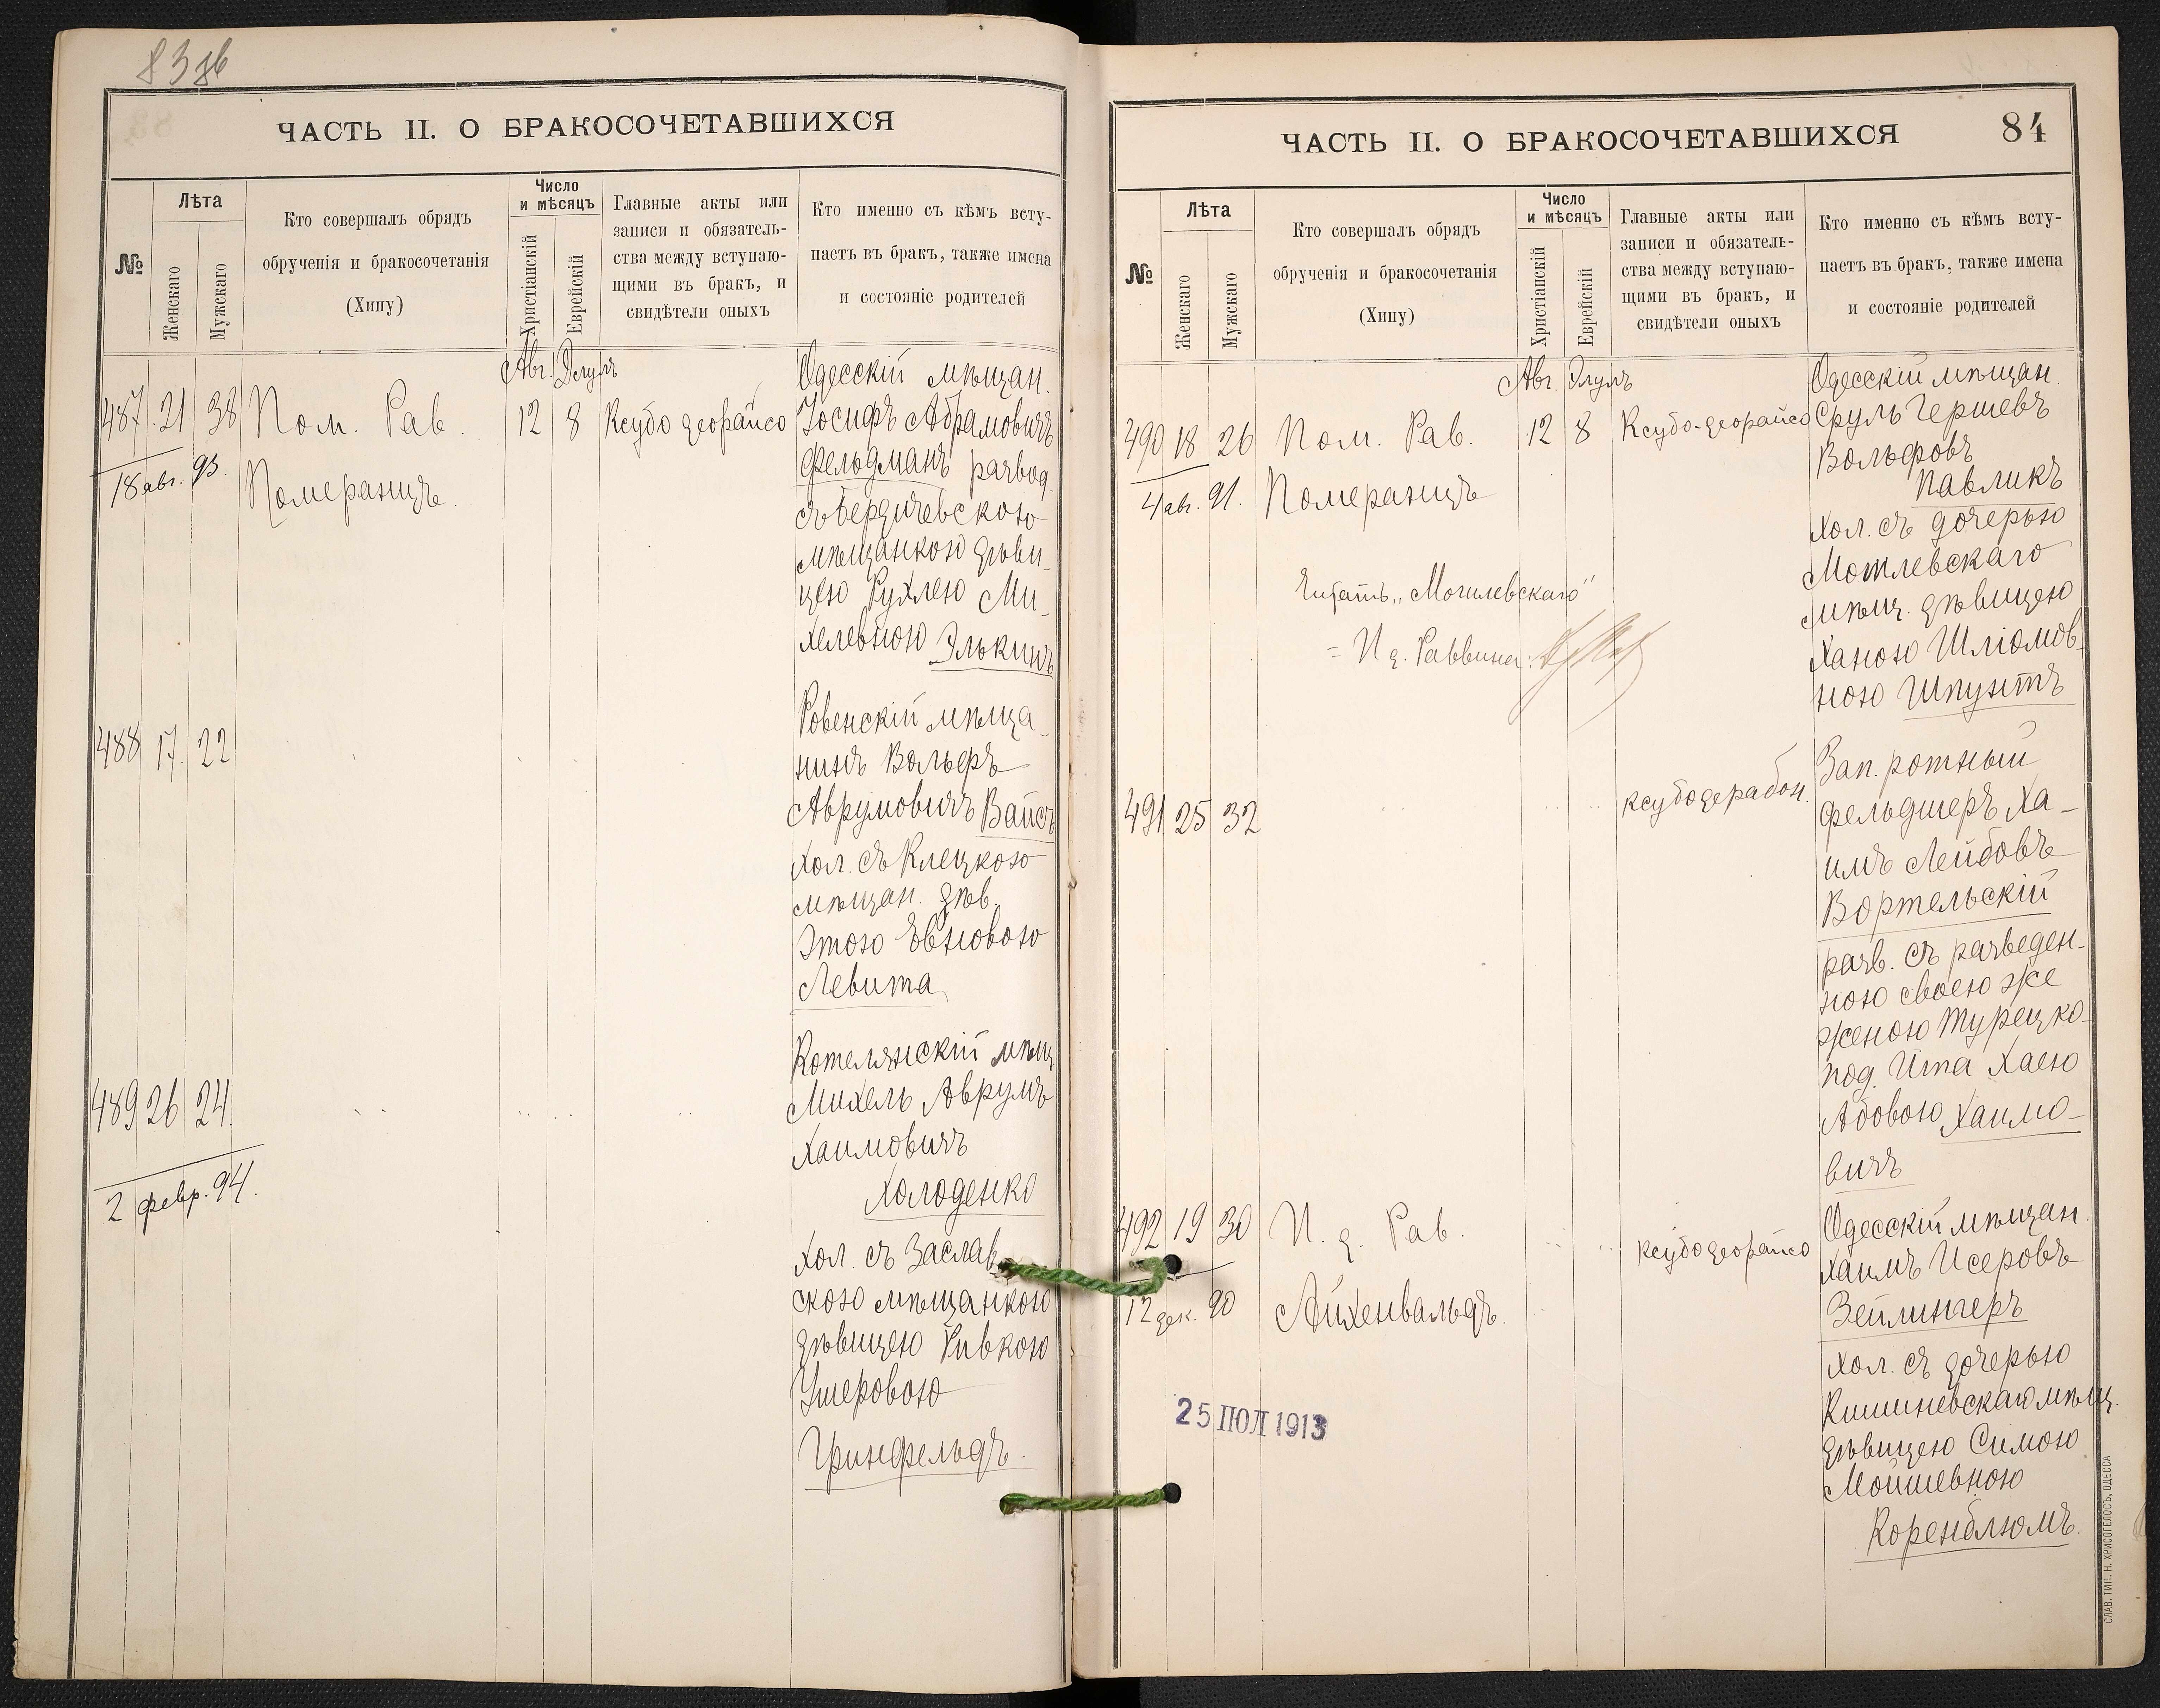 83 об
ЧАСТЬ II. О БРАКОСОЧЕТАВШИХСЯ
№
Лѣта
Женскаго
Мужскаго
Кто совершалъ обрядъ
обрученія и бракосочетанія
(Хипу)
Число
и мѣсяцъ
Христіанскій
Еврейскій
Главные акты или
записи и обязатель-
ства между вступаю-
щими въ бракъ, и
свидѣтели оныхъ
Кто именно съ кѣмъ всту-
паетъ въ бракъ, также имена
и состояніе родителей
Авг. Элулъ
487. 21 38 Пом. Рав. 12 8 Ксубо деорайсо
18 авг. 93.
Померанцъ.
Одесскій мѣщан.
Іосифъ Абрамовичъ
Фельдманъ развод.
съ Бердичевскою
мѣщанкою дѣви-
цею Рухлею Ми-
хелевною Элькинъ
488 17. 22
Ровенскій мѣща-
нинъ Вольфъ
Аврумовичъ Вайсъ
хол. съ Клецкою
мѣщан. дѣв.
Этою Евновою
Левита
489 26 24.
2 февр. 94.
Котелянскій мѣщ.
Михель Аврумъ
Хаимовичъ
Холоденко
хол. съ Заслав-
скою мѣщанкою
дѣвицею Ривкою
Ушеровою
Гринфельдъ.
ЧАСТЬ II. О БРАКОСОЧЕТАВШИХСЯ
84
№
Лѣта
Женскаго
Мужскаго
Кто совершалъ обрядъ
обрученія и бракосочетанія
(Хипу)
Число
и мѣсяцъ
Христіанскій
Еврейскій
Главные акты или
записи и обязатель-
ства между вступаю-
щими въ бракъ, и
свидѣтели оныхъ
Кто именно съ кѣмъ всту-
паетъ въ бракъ, также имена
и состояніе родителей
Авг. Элулъ
490 18 26 Пом. Рав. 12 8 Ксубо-деорайсо
4 авг. 91.
Померанцъ
Читать „Могилевскаго"
= И д. Раввина:
Одесскій мѣщан.
Сруль Гершевъ
Вольфовъ
Павликъ
хол. съ дочерью
Мотлевскаго
мѣщ. дѣвицею
Ханою Шліомов-
ною Шпунтъ
491. 25 32 ксубодерабон.
Зап. ротный
фельдшеръ Ха-
имъ Лейбовъ
Вортельскій
разв. съ разведен-
ною своею же
женою Турецко-
под. Ита Хаею
Абовою Хаимо-
вичъ
492 19 30 И. д. Рав. ксубодеорайсо
12 дек. 90
Айхенвальдъ.
Одесскій мѣщан.
Хаимъ Исеровъ
Зейлингеръ
хол. съ дочерью
Кишиневскаго мѣщ.
дѣвицею Симою
Мойшевною
Коренблюмъ.
25 ІЮЛ 1913
СЛАВ. ТИП. Н. ХРИСОГЕЛОСЪ, ОДЕССА